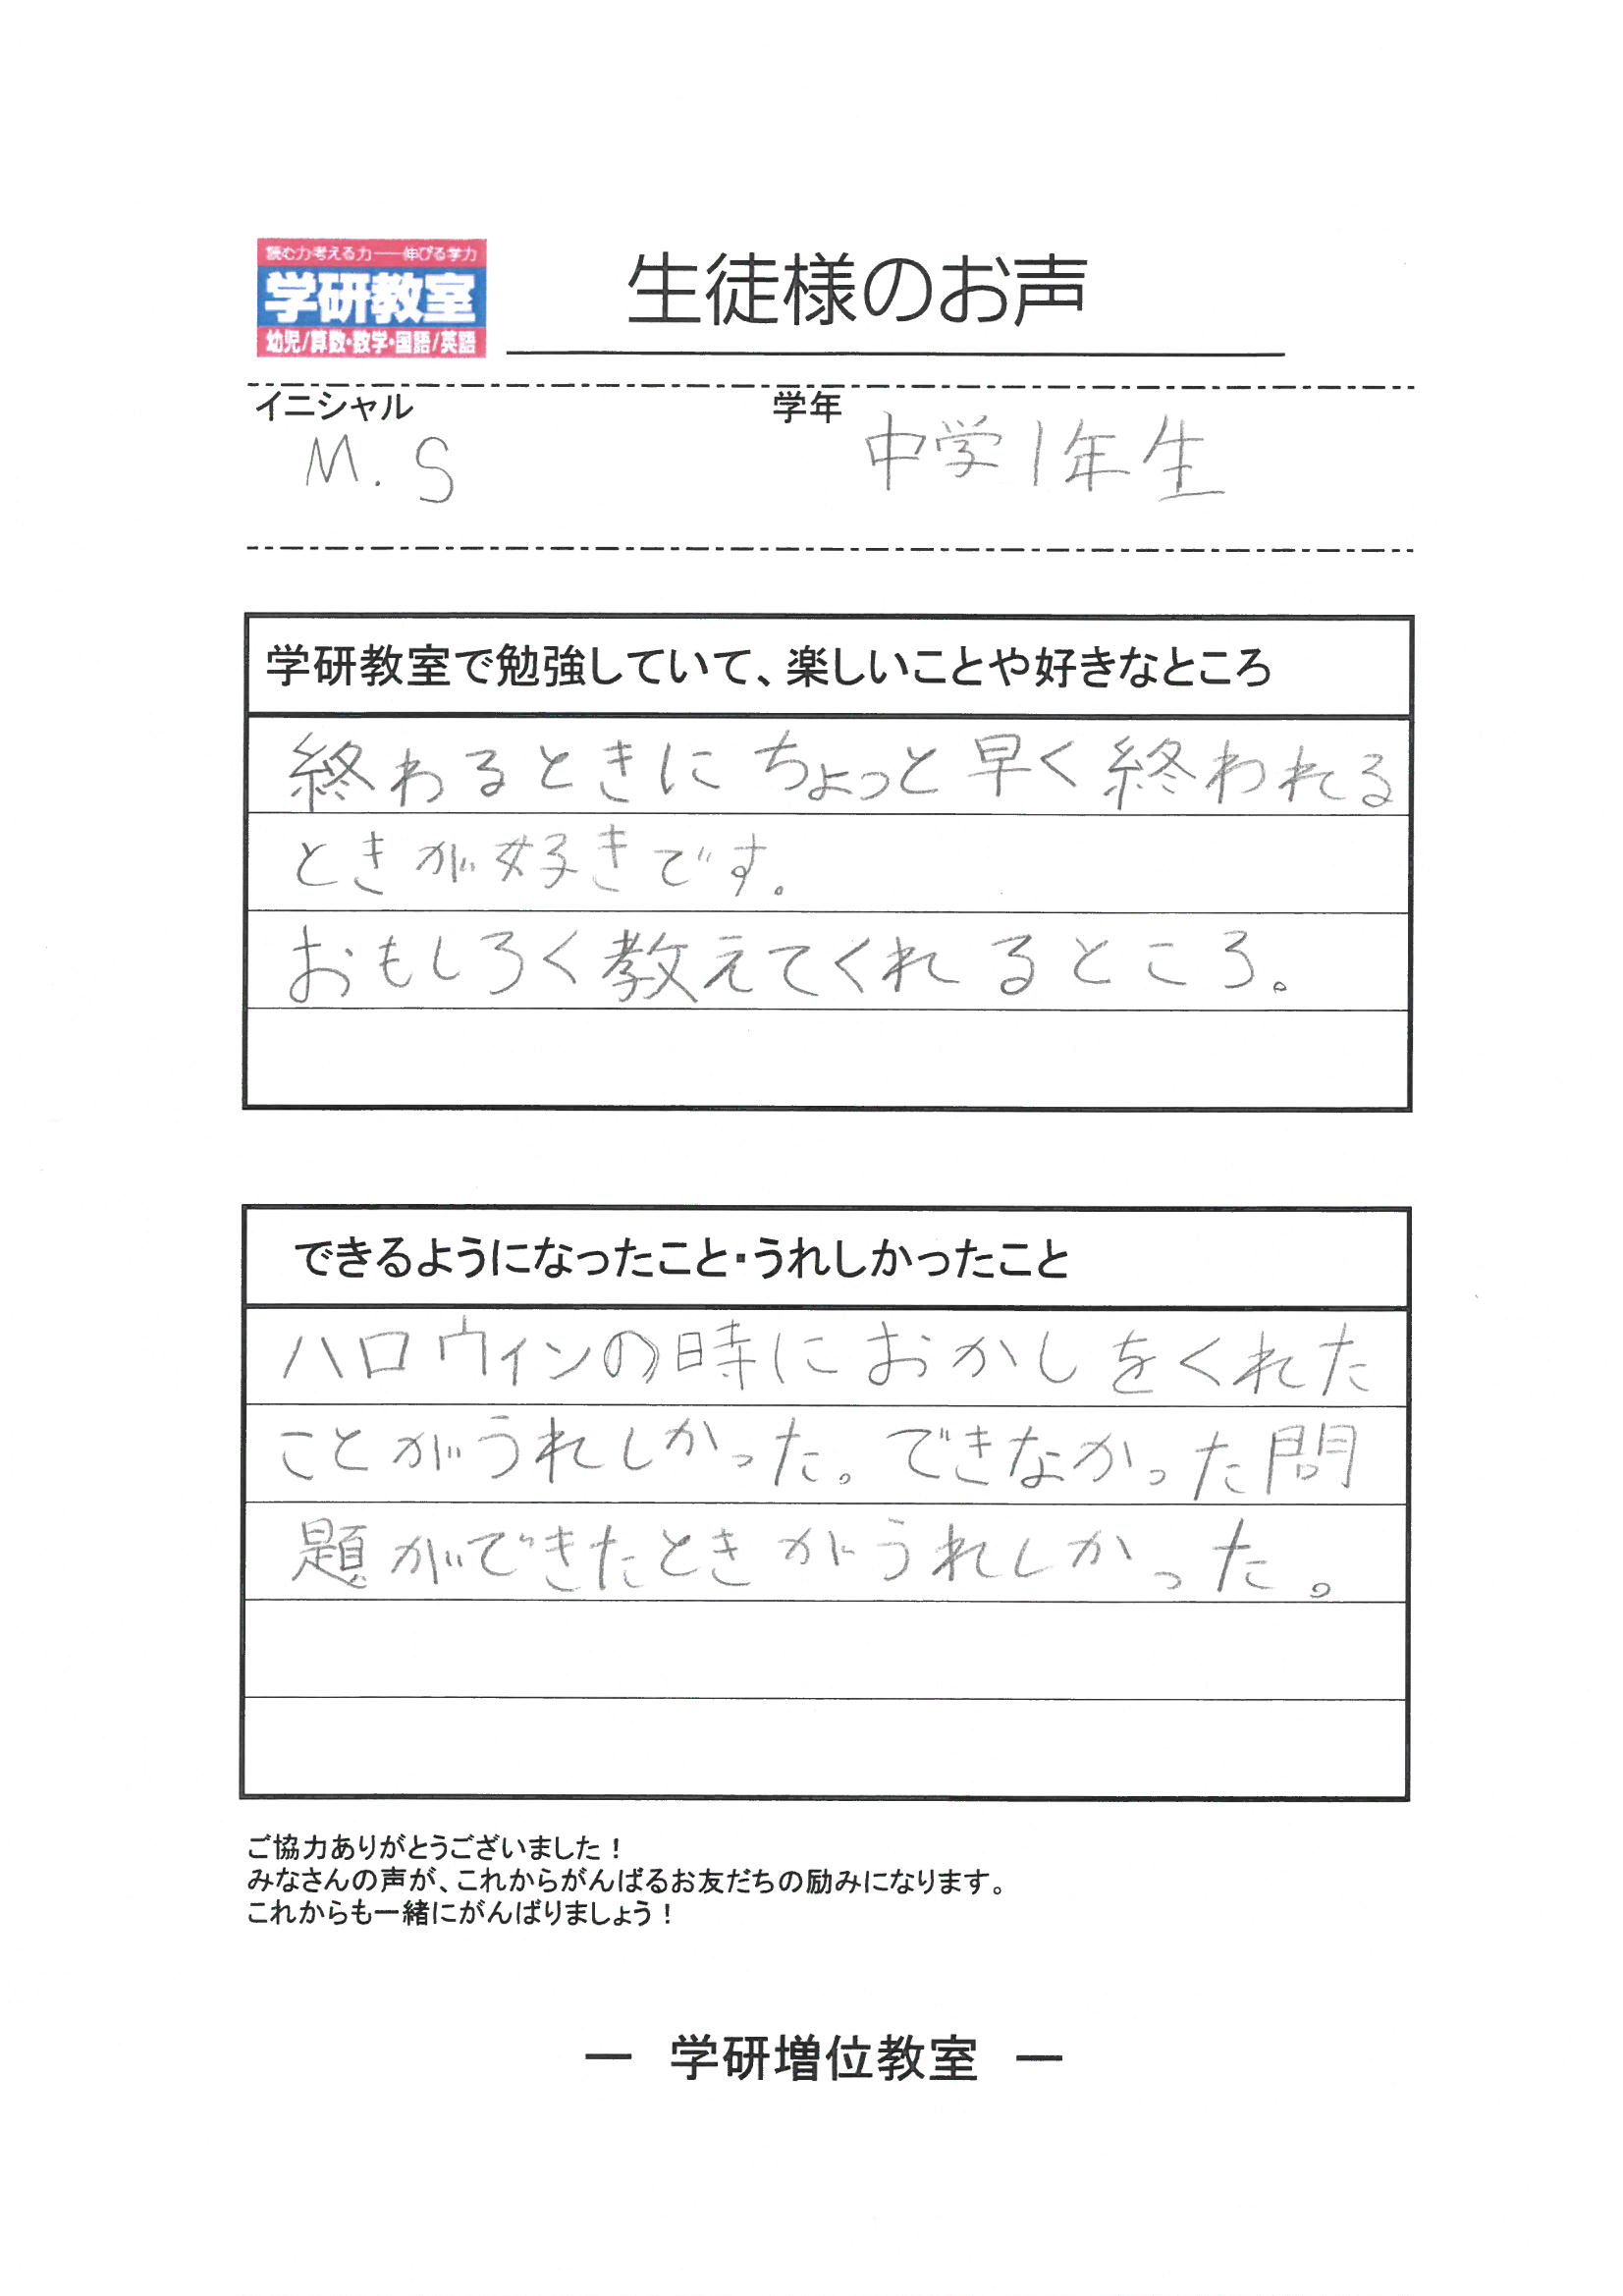 読む力考える力――伸びる学力
学研教室
幼児/算数・数学・国語/英語
生徒様のお声
イニシャル
学年
M.S
中学1年生
学研教室で勉強していて、楽しいことや好きなところ
終わるときにちょっと早く終われる
ときが好きです。
おもしろく教えてくれるところ。
できるようになったこと・うれしかったこと
ハロウィンの時におかしをくれた
ことがうれしかった。できなかった問
題ができたときがうれしかった。
ご協力ありがとうございました！
みなさんの声が、これからがんばるお友だちの励みになります。
これからも一緒にがんばりましょう！
― 学研増位教室 ―